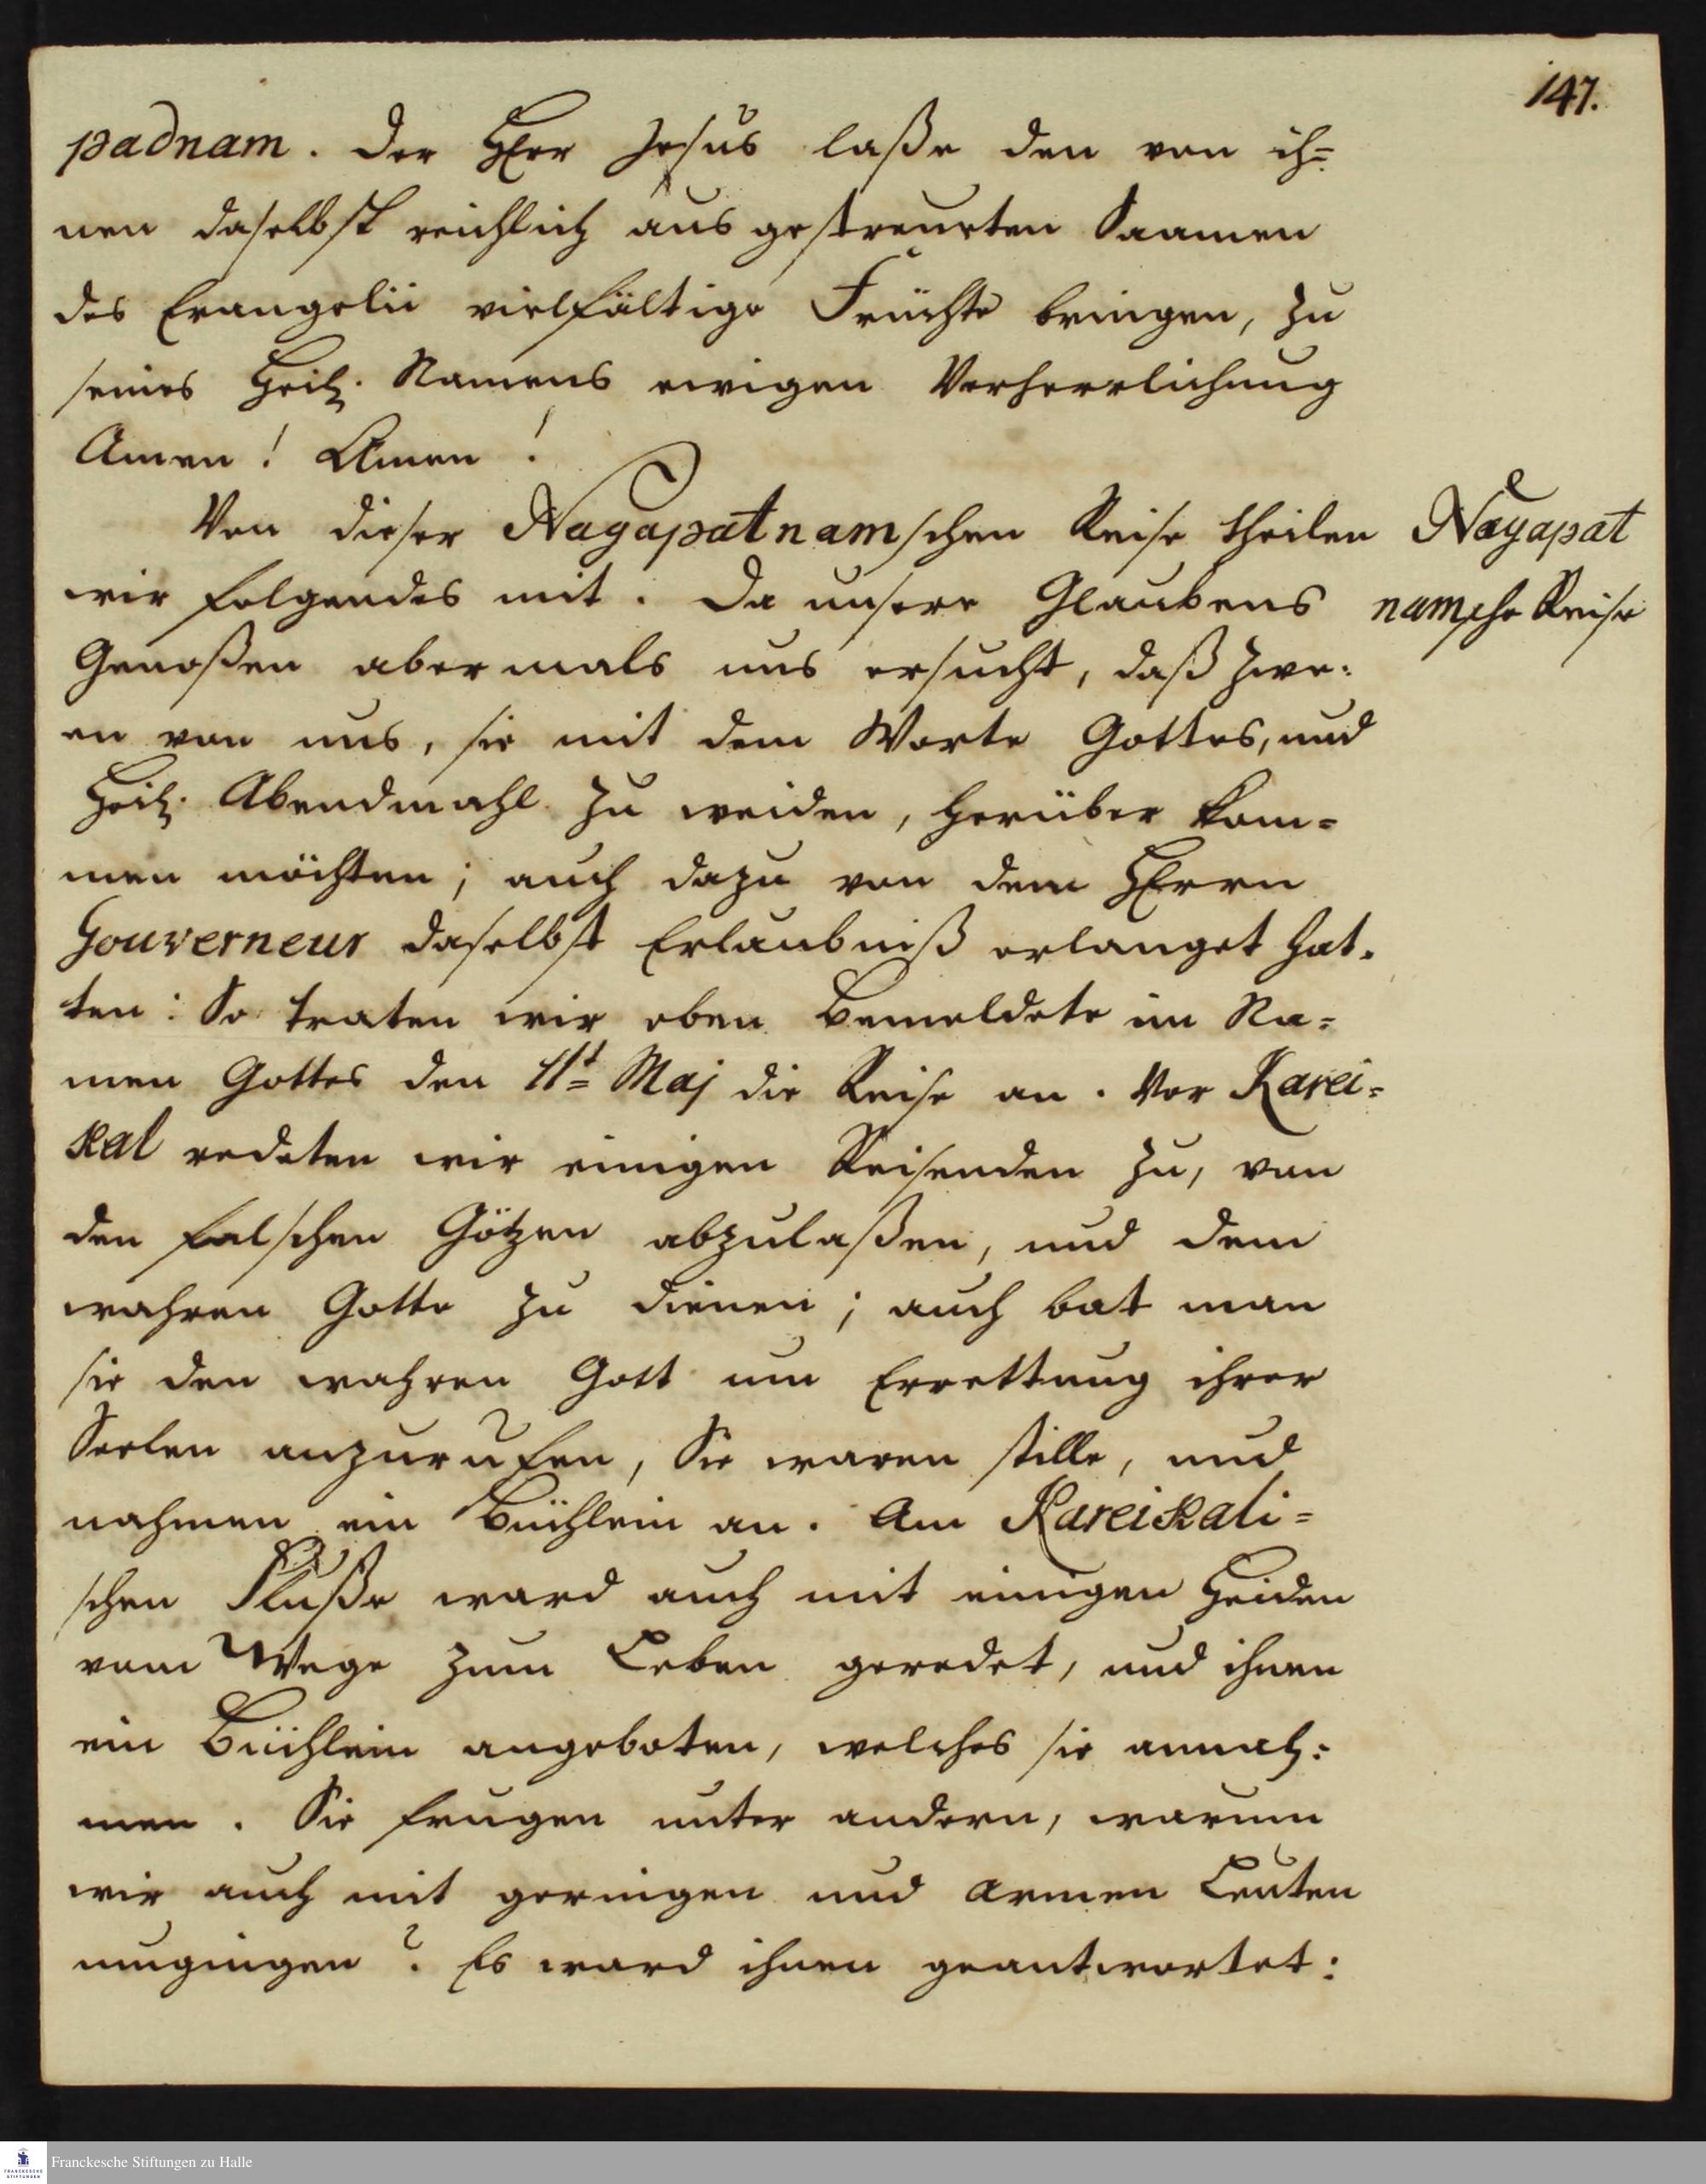 147.
padnam. Der HErr Jesus laße den von ih=
nen daselbst reichlich ausgestreueten Saamen
des Evangelii vielfältige Früchte bringen, zu
seines Heil. Namens ewigen Verherrlichung
Amen! Amen!
Von dieser Nagapatnamschen Reise theilen
wir folgendes mit. Da unsere Glaubens
Genoßen abermals uns ersucht, daß zwe=
en von uns, sie mit dem Worte Gottes, und
Heil. Abendmahl zu weiden, herüber kom=
men möchten; auch dazu von dem HErrn
Gouverneur daselbst Erlaubniß erlanget hat=
ten: So traten wir oben bemeldete im Na=
men Gottes den 11t Maj die Reise an. Vor Karei=
kal redeten wir einigen Reisenden zu, von
den falschen Götzen abzulaßen, und dem
wahren Gotte zu dienen; auch bat man
sie den wahren Gott um Errettung ihrer
Seelen anzurufen, Sie waren stille, und
nahmen ein Büchlein an. Am Kareikali=
schen Fluße ward auch mit einigen Heiden
vom Wege zum Leben geredet, und ihnen
ein Büchlein angeboten, welches sie annah=
men. Sie frugen unter andern, warum
wir auch mit geringen und armen Leuten
umgingen? Es ward ihnen geantwortet:
Nagapat
namsche Reise
Franckesche Stiftungen zu Halle